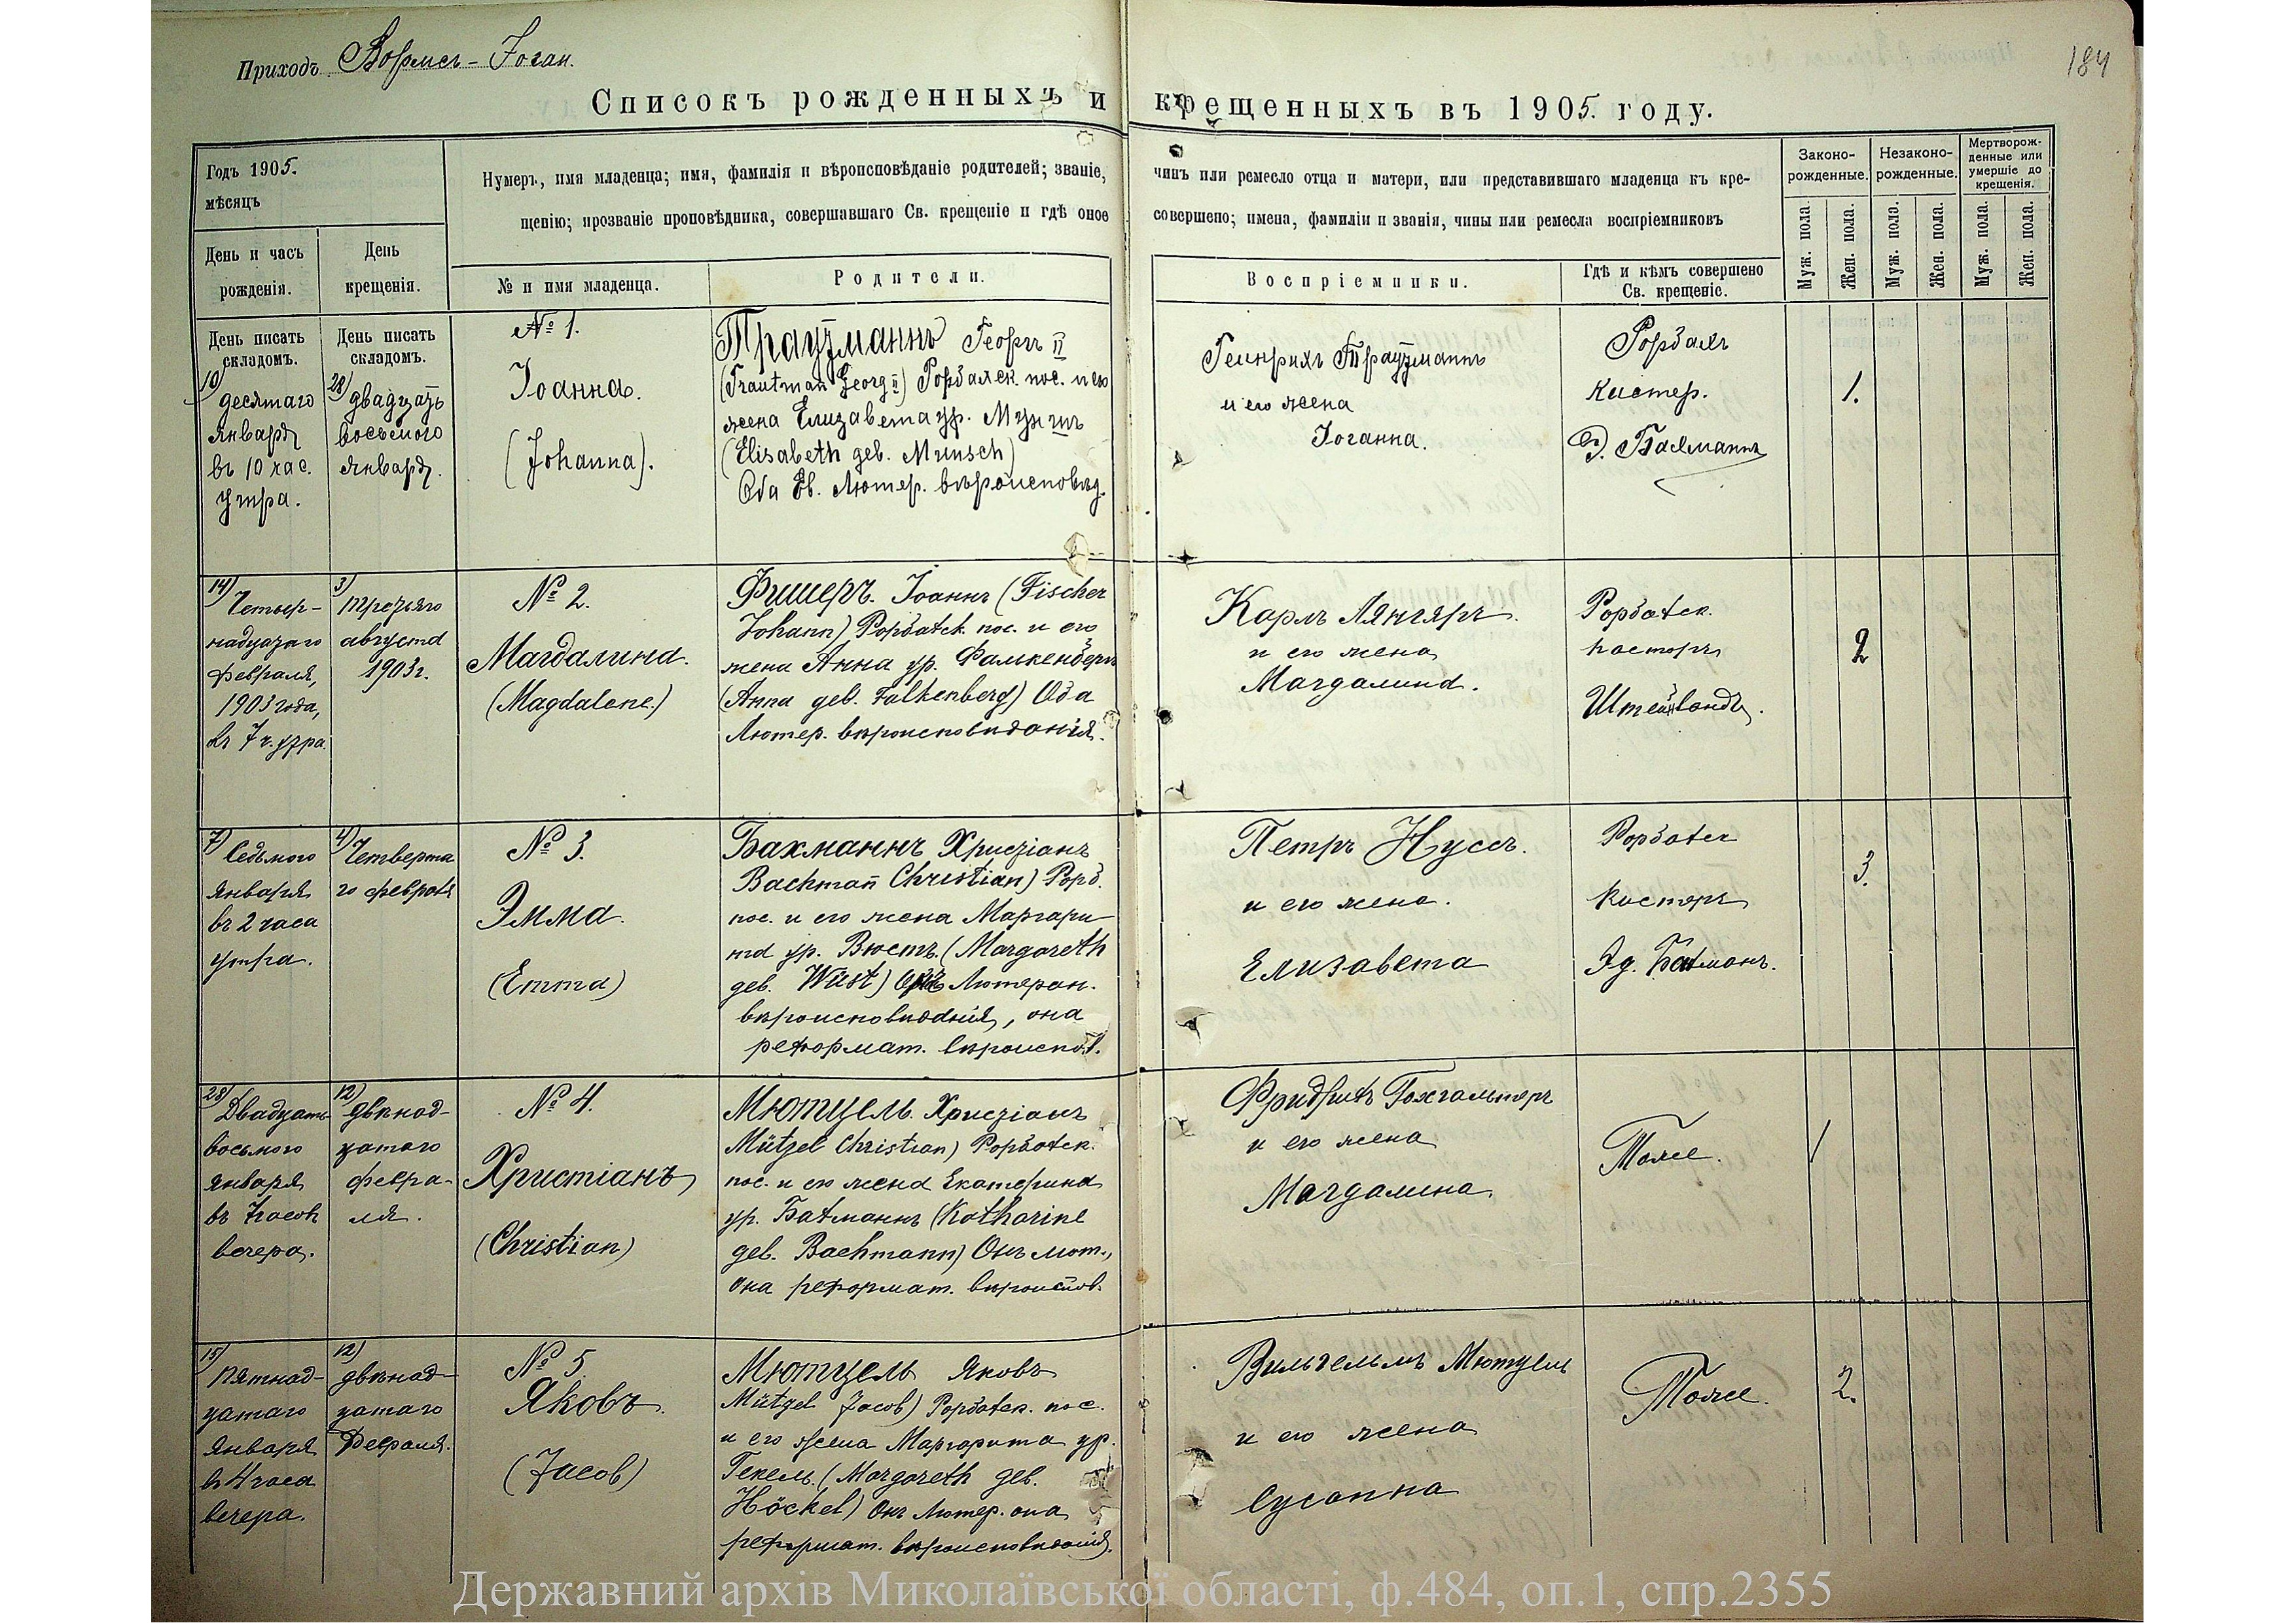 Приходъ Вормсъ-Іоган.
184
Списокъ рожденныхъ и крещенныхъ въ 1905. году.
Годъ 1905.
мѣсяцъ
Нумеръ, имя младенца; имя, фамилія и вѣроисповѣданіе родителей; званіе, чинъ или ремесло отца и матери, или представившаго младенца къ кре-
щенію; прозваніе проповѣдника, совершавшаго Св. крещеніе и гдѣ оное совершено; имена, фамиліи и званія, чины или ремесла воспріемниковъ
Законо-
рожденные.
Незаконо-
рожденные.
Мертворож-
денные или
умершіе до
крещенія.
День и часъ
рожденія.
День
крещенія.
№ и имя младенца.
Родители.
Воспріемники.
Гдѣ и кѣмъ совершено
Св. крещеніе.
Муж. пола.
Жен. пола.
Муж. пола.
Жен. пола.
Муж. пола.
Жен. пола.
День писать
складомъ.
10)
десятаго
января
въ 10 час.
утра.
День писать
складомъ.
28)
двадцать
восьмого
января.
№ 1.
Іоанна.
(Johanna).
Траутманнъ Георгъ II
(Trautman̄ Georg II) Рорбахск. пос. и его
жена Елизавета ур. Муншъ
(Elisabeth geb. Munsch)
Оба Ев. Лютер. вѣроисповѣд.
Генрихъ Траутманнъ
и его жена
Іоганна.
Рорбахъ
Кистер.
Э. Бахманнъ
1.
14)
Четыр-
надцатаго
февраля,
1903 года,
въ 7 ч. утра
3)
Третьяго
августа
1903г.
№ 2.
Магдалина.
(Magdalene.)
Фишеръ. Іоаннъ (Fischer
Johann) Рорбахск. пос. и его
жена Анна ур. Фалкенбергъ
(Anna geb. Falkenberg) Оба
Лютер. вѣроисповѣданія.
Карлъ Лянгяръ.
и его жена
Магдалина.
Рорбахск.
пасторъ
Штейнвандъ.
2
7)
Седьмого
января
въ 2 часа
утра.
4)
Четверта
го февраля
№ 3.
Эмма.
(Emma)
Бахманнъ Христіанъ
Bachman̄ Christian) Рорб.
пос. и его жена Маргари-
та ур. Вюстъ. (Margareth
geb. Wüst) Онъ Лютеран.
вѣроисповѣданія, она
реформат. вѣроиспов.
Петръ Нуссъ.
и его жена.
Елизавета
Рорбахск
Кистеръ
Эд. Бахманъ.
3.
28)
Двадцать
восьмого
января
въ 7 часов
вечера.
12)
двѣнад-
цатаго
февра-
ля.
№ 4.
Христіанъ
(Christian)
Мютцель. Христіанъ
Mützel Christian) Рорбахск.
пос. и его жена Екатерина
ур. Бахманнъ (Katharine
geb. Bachmann) Онъ лют.,
она реформат. вѣроиспов.
Фридрихъ Гохгальтеръ
и его жена
Магдалина.
Тоже.
1
15)
Пятнад-
цатаго
января
въ 4 часа
вечера.
12)
двѣнад-
цатаго
февраля.
№ 5
Яковъ.
(Jacob)
Мютцель Яковъ
Mützel Jacob) Рорбахск. пос.
и его жена Маргарита ур.
Гекель. (Margareth geb.
Höckel) Онъ Лютер. она
реформат. вѣроисповѣданія.
Вильгельмъ Мютцель
и его жена
Сусанна
Тоже.
2.
Державний архів Миколаївської області, ф.484, оп.1, спр.2355